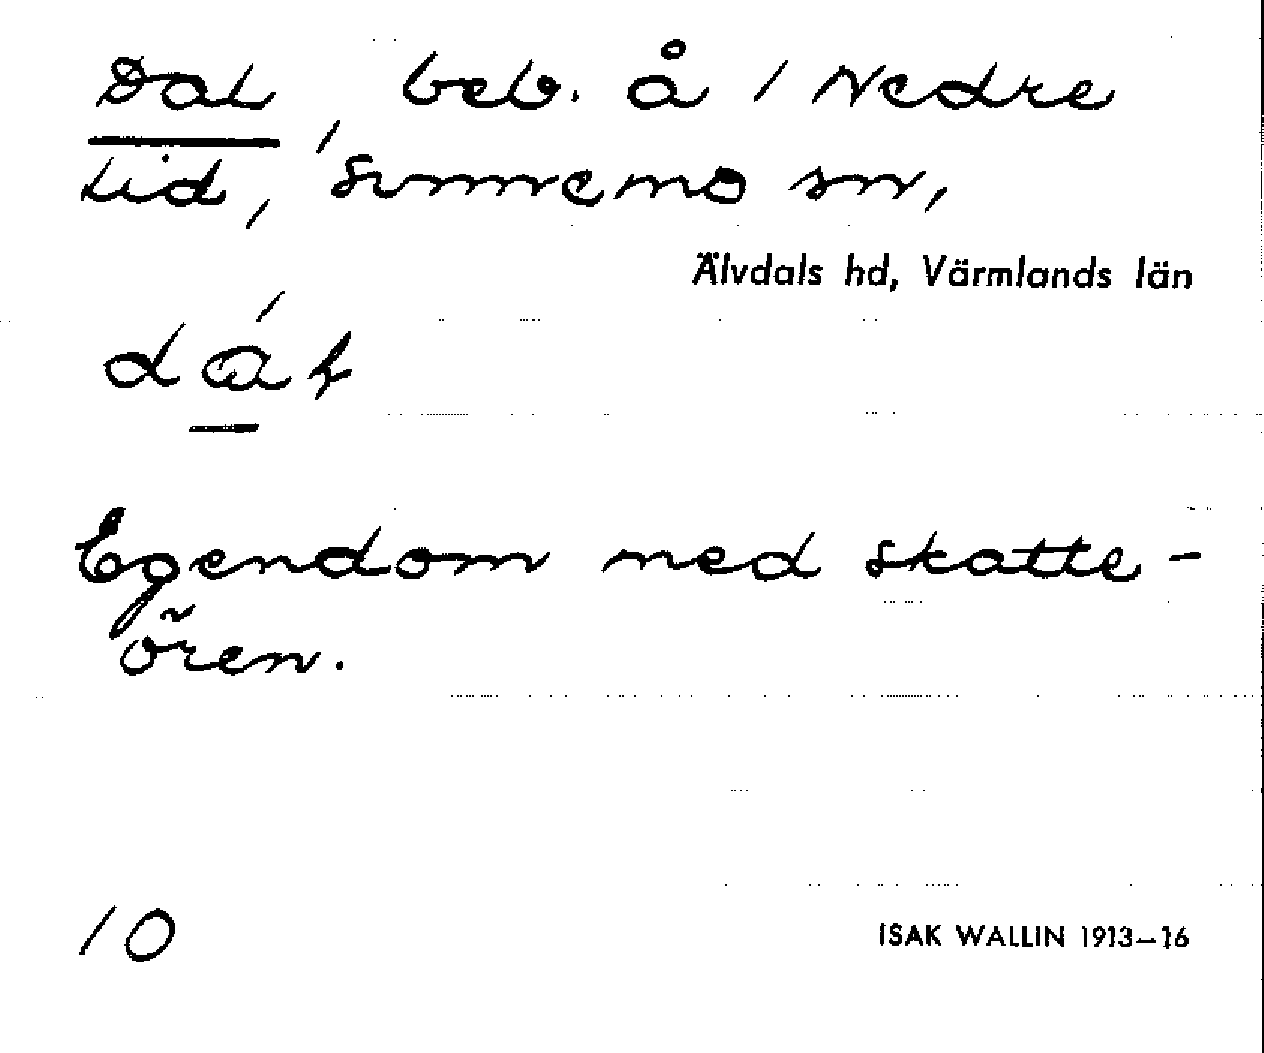 Dal, beb. å / Nedre
Lid, Sunnemo sn,
Älvdals hd, Värmlands län
Egendom med skatte-
ören.
10
ISAK WALLIN 1913–16